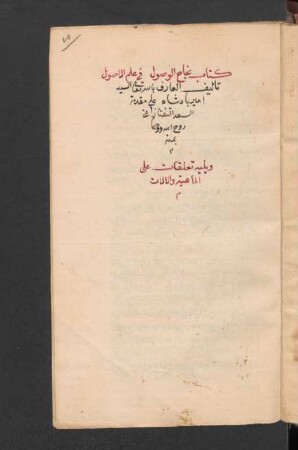 كتاب نجاح الوصول في علم الاصول
تأليف العارف بالله تعالى السيد
امير بادشاه على مقدمة
السعد التفتازاني
روح الله روحه
بمنه
م
ويليه تعلقات على
الماهية والالات
م